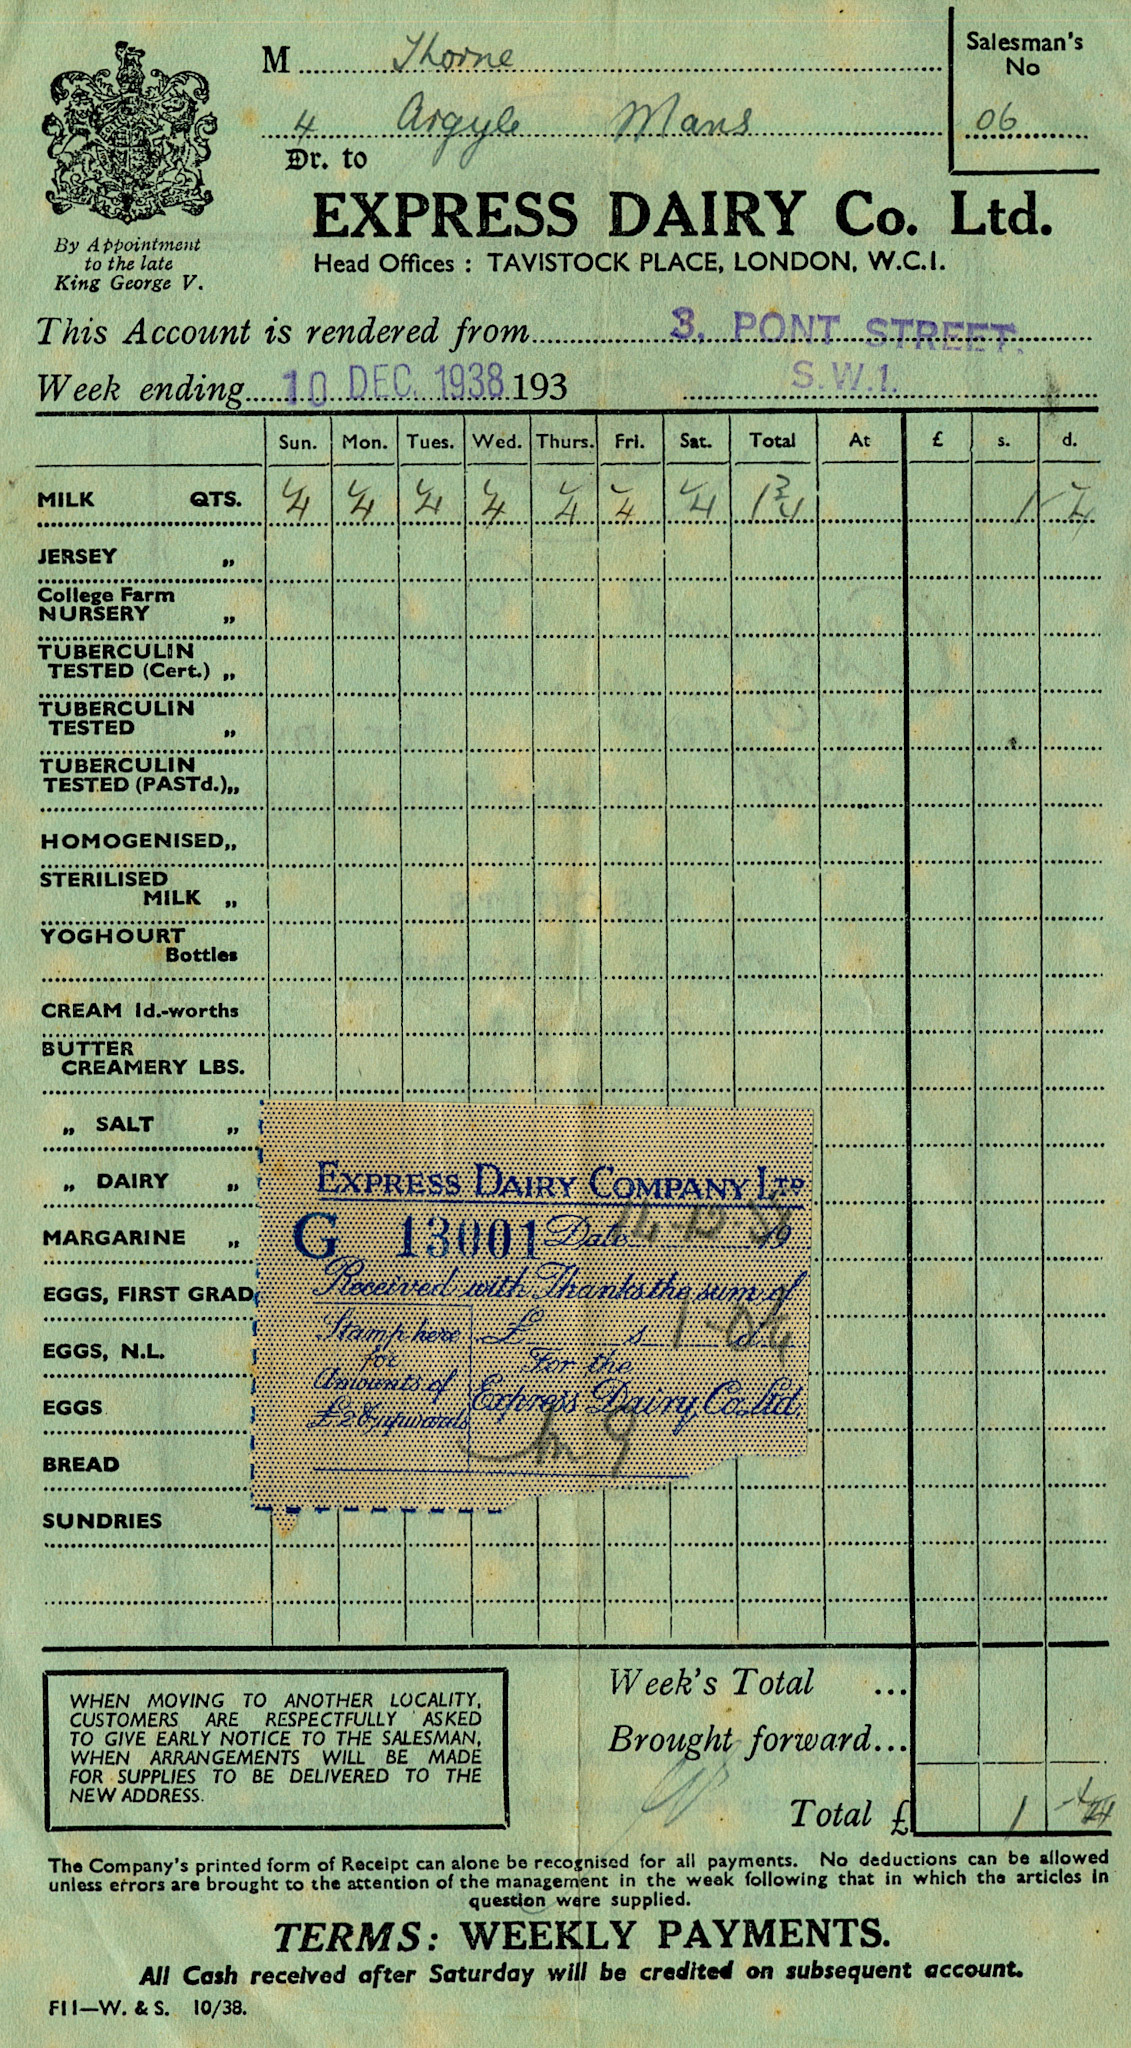 M Thorne
Salesman's
No
06
4 Argyle Mans
Dr. to
EXPRESS DAIRY Co. Ltd.
Head Offices : TAVISTOCK PLACE, LONDON, W.C.1.
By Appointment
to the late
King George V.
This Account is rendered from 3, PONT STREET,
Week ending 10 DEC. 1938 193 S.W.1.
Sun. Mon. Tues. Wed. Thurs. Fri. Sat. Total At £ s. d.
MILK QTS. ¼ ¼ ¼ ¼ ¼ ¼ ¼ 1¾ 1 - ¼
JERSEY „
College Farm
NURSERY „
TUBERCULIN
TESTED (Cert.) „
TUBERCULIN
TESTED „
TUBERCULIN
TESTED (PASTd.) „
HOMOGENISED „
STERILISED
MILK „
YOGHOURT
Bottles
CREAM 1d.-worths
BUTTER
CREAMERY LBS.
„ SALT „
„ DAIRY „
MARGARINE „
EGGS, FIRST GRAD
EGGS, N.L.
EGGS
BREAD
SUNDRIES
EXPRESS DAIRY COMPANY LTD
G 13001 Date 14-12 38 19
Received with Thanks the sum of
Stamp here
for
Amounts of
£2 & upwards
£ s 1-0¼ d
For the
Express Dairy, Co. Ltd
WHEN MOVING TO ANOTHER LOCALITY,
CUSTOMERS ARE RESPECTFULLY ASKED
TO GIVE EARLY NOTICE TO THE SALESMAN,
WHEN ARRANGEMENTS WILL BE MADE
FOR SUPPLIES TO BE DELIVERED TO THE
NEW ADDRESS.
Week's Total ...
Brought forward...
Total £ 1 - ¼
The Company's printed form of Receipt can alone be recognised for all payments. No deductions can be allowed
unless errors are brought to the attention of the management in the week following that in which the articles in
question were supplied.
TERMS: WEEKLY PAYMENTS.
All Cash received after Saturday will be credited on subsequent account.
F11—W. & S. 10/38.